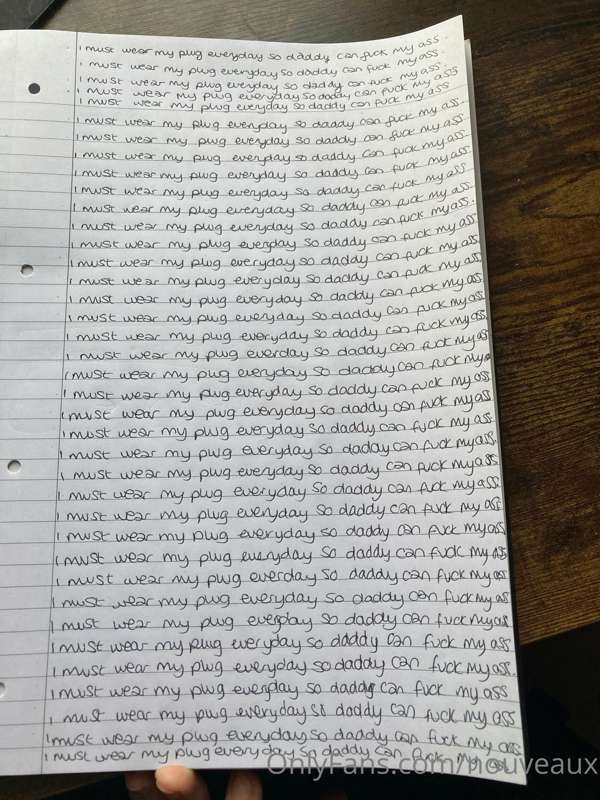 I must wear my plug everyday so daddy can fuck my ass.
I must wear my plug everyday so daddy can fuck my ass.
I must wear my plug everyday so daddy can fuck my ass.
I must wear my plug everyday so daddy can fuck my ass
I must wear my plug everyday so daddy can fuck my ass
I must wear my plug everyday so daddy can fuck my ass.
I must wear my plug everyday so daddy can fuck my ass.
I must wear my plug everyday so daddy can fuck my ass.
I must wear my plug everyday so daddy can fuck my ass.
I must wear my plug everyday so daddy can fuck my ass.
I must wear my plug everyday so daddy can fuck my ass.
I must wear my plug everyday so daddy can fuck my ass.
I must wear my plug everyday so daddy can fuck my ass
I must wear my plug everyday so daddy can fuck my ass.
I must wear my plug everyday so daddy can fuck my ass.
I must wear my plug everyday so daddy can fuck my ass.
I must wear my plug everyday so daddy can fuck my ass.
I must wear my plug everyday so daddy can fuck my ass
I must wear my plug everday so daddy can fuck my ass
I must wear my plug everyday so daddy can fuck my ass
I must wear my plug everyday so daddy can fuck my ass.
I must wear my plug everyday so daddy can fuck my ass
I must wear my plug everyday so daddy can fuck my ass.
I must wear my plug everyday so daddy can fuck my ass.
I must wear my plug everyday so daddy can fuck my ass
I must wear my plug everyday so daddy can fuck my ass
I must wear my plug everyday so daddy can fuck my ass
I must wear my plug everyday so daddy can fuck my ass
I must wear my plug everyday so daddy can fuck my ass
I must wear my plug everday so daddy can fuck my ass
I must wear my plug everyday so daddy can fuck my ass
I must wear my plug everyday so daddy can fuck my ass
I must wear my plug everyday so daddy can fuck my ass
I must wear my plug everyday so daddy can fuck my ass.
I must wear my plug everyday so daddy can fuck my ass
I must wear my plug everyday so daddy can fuck my ass
I must wear my plug everyday so daddy can fuck my ass
I must wear my plug everyday so daddy can fuck my ass
OnlyFans.com/nouveaux